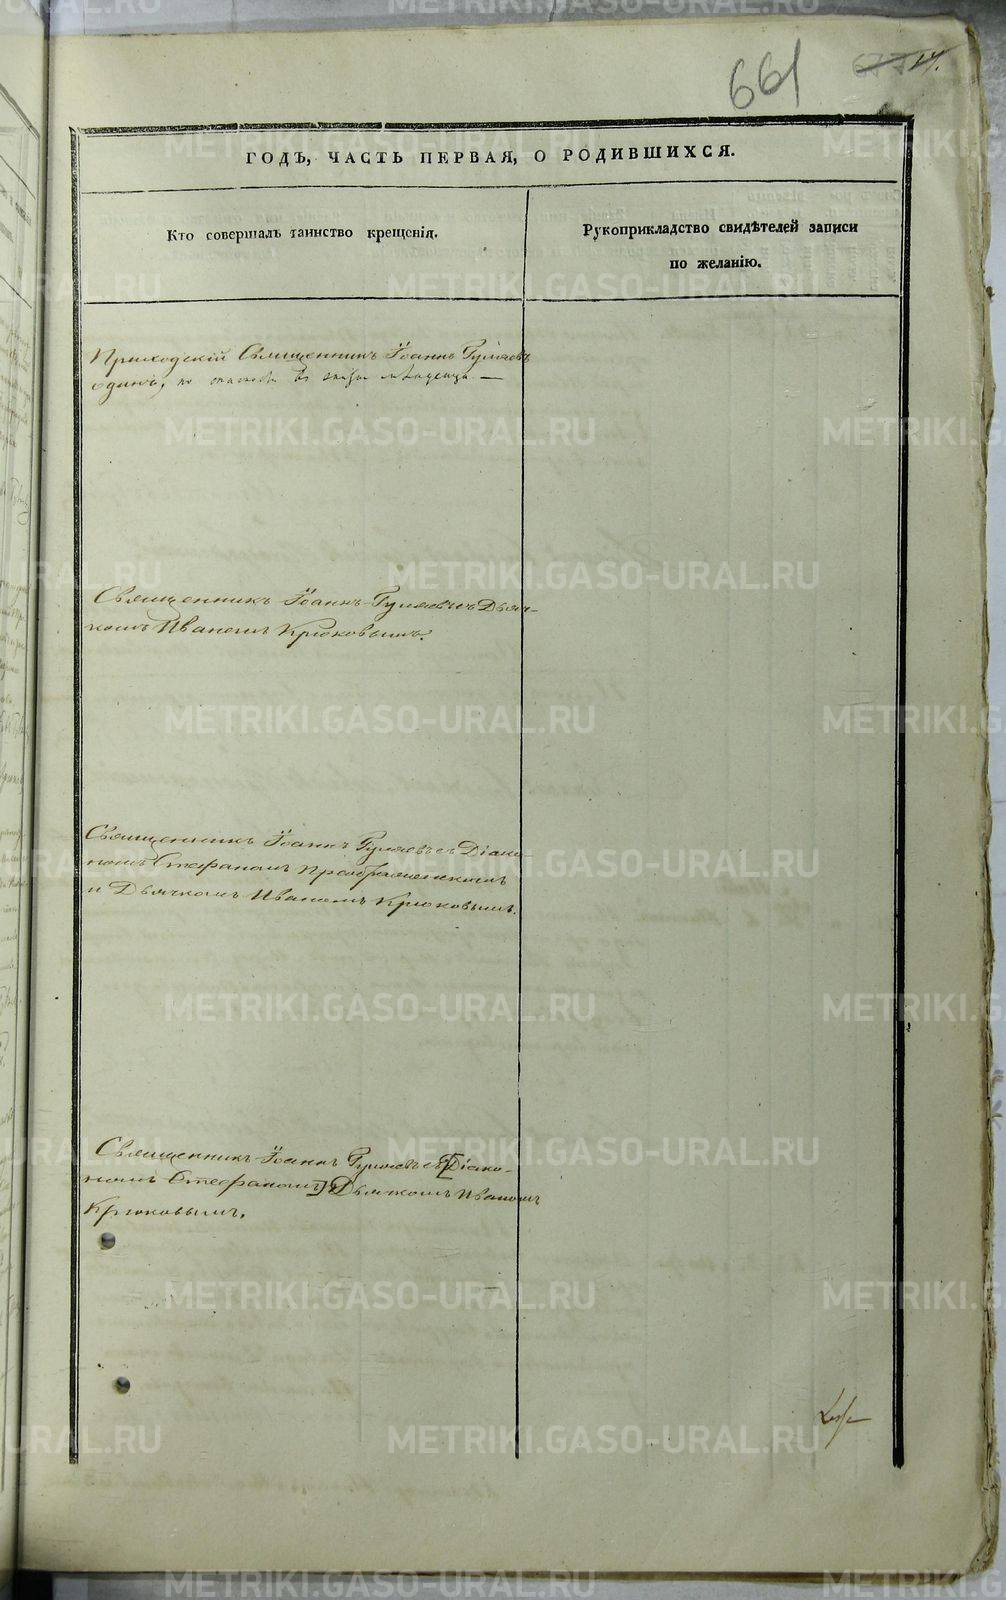 661
ГОДЪ, ЧАСТЬ ПЕРВАЯ, О РОДИВШИХСЯ.
Кто совершалъ таинство крещенія.
Рукоприкладство свидѣтелей записи
по желанію.
Приходскій Священникъ Іоаннъ Гуляевъ
одинъ, по
Священникъ Іоаннъ Гуляевъ съ Дьяч-
комъ Иваномъ Крюковымъ.
Священникъ Іоаннъ Гуляевъ съ Діако-
номъ Стефаномъ Преображенскимъ
и Дьячкомъ Иваномъ Крюковымъ.
Священникъ Іоаннъ Гуляевъ съ Діако-
номъ Стефаномъ Дьячкомъ Иваномъ
Крюковымъ.
METRIKI.GASO-URAL.RU